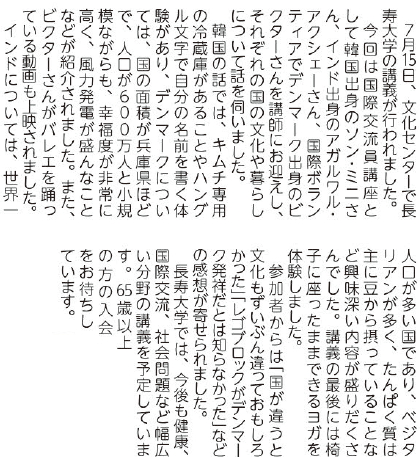 ７月15日、文化センターで長
寿大学の講義が行われました。
　今回は国際交流員講座と
して韓国出身のソン・ミニさ
ん、インド出身のアガルワル・
アクシェーさん、国際ボラン
ティアでデンマーク出身のビ
クターさんを講師にお迎えし、
それぞれの国の文化や暮らし
について話を伺いました。
　韓国の話では、キムチ専用
の冷蔵庫があることやハング
ル文字で自分の名前を書く体
験があり、デンマークについ
ては、国の面積が兵庫県ほど
で、人口が600万人と小規
模ながらも、幸福度が非常に
高く、風力発電が盛んなこと
などが紹介されました。また、
ビクターさんがバレエを踊っ
ている動画も上映されました。
　インドについては、世界一
人口が多い国であり、ベジタ
リアンが多く、たんぱく質は
主に豆から摂っていることな
ど興味深い内容が盛りだくさ
んでした。講義の最後には椅
子に座ったままできるヨガを
体験しました。
　参加者からは「国が違うと
文化もずいぶん違っておもしろ
かった」「レゴブロックがデンマー
ク発祥だとは知らなかった」など
の感想が寄せられました。
　長寿大学では、今後も健康、
国際交流、社会問題など幅広
い分野の講義を予定していま
す。65歳以上
の方の入会
をお待ちし
ています。